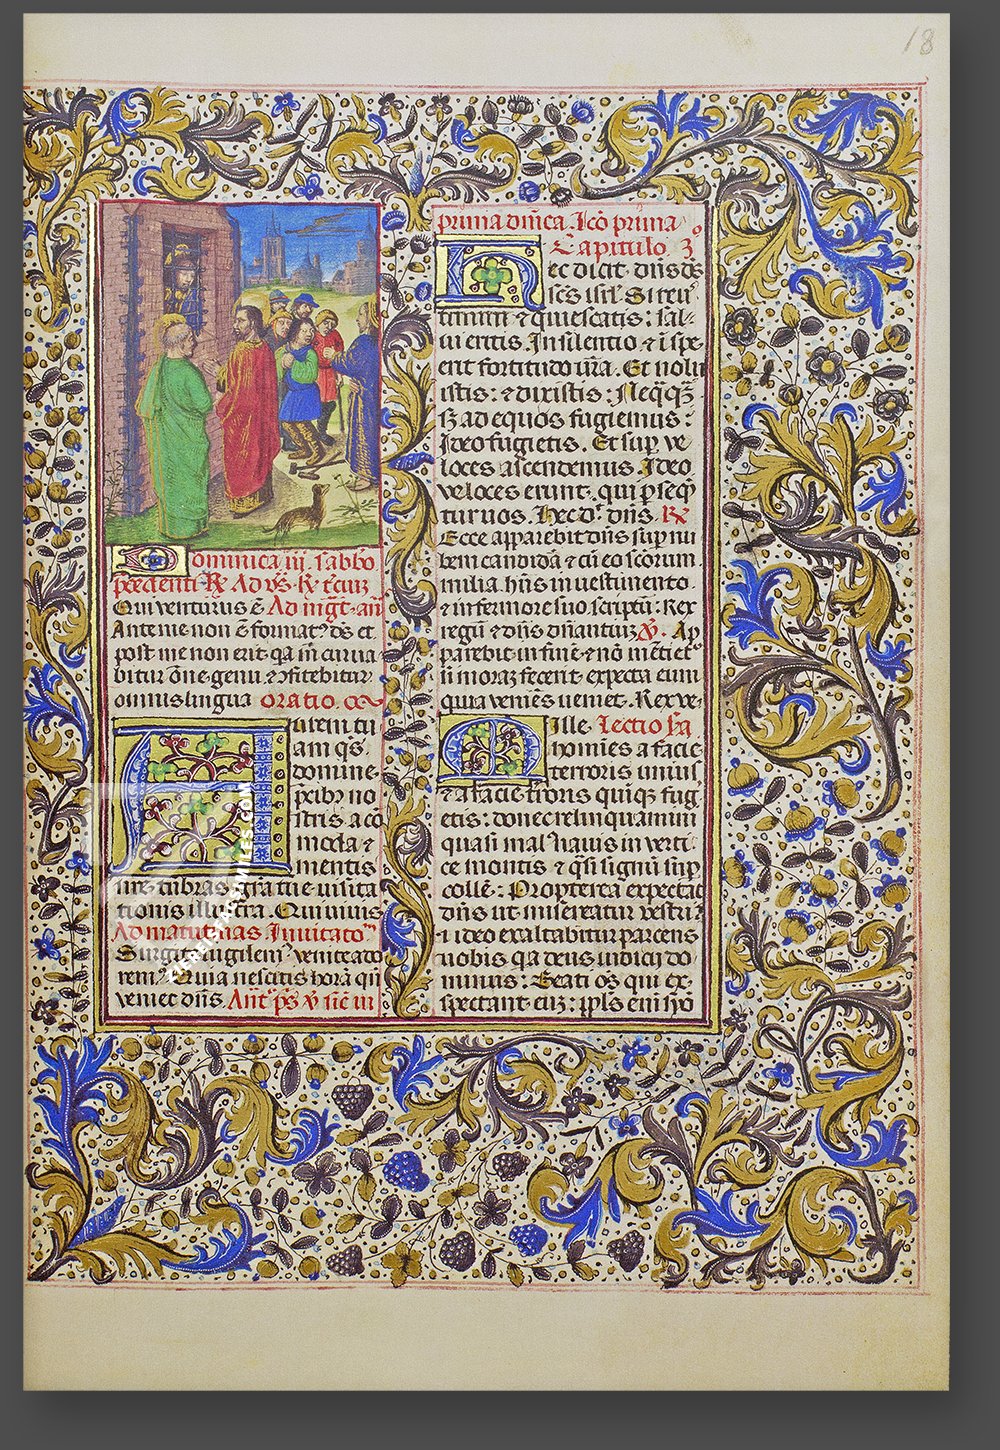 18
Dominica iii. sabbo
precedenti R Ad vs. R breuiz
Qui venturus e Ad mgt. an
Ante me non e format9 ds et
post me non erit qa m curua
bitur one genu. 7 9fitebitur
omnis lingua oratio.
Aurem tu
am qs
domine
pcibz no
stris aco
moda 7
mentis
nre tenbras. gratia e uisita
tionis illustra. Qui uiuis
Ad matutinas. Inuitato
Surgite uigilem9 veniteado
rem9. Quia nescitis hora qn
veniet dns. Ant ps v sic in
prima dnica. Ico prima
Capitulo. 3
Hec dicit dns ds
scs isrl. Si reu
timini 7 quiescatis: sal
ui eritis. In silentio 7 i spe
erit fortitudo ura. Et nolu
istis: 7 dixistis. Neqqz
sz ad equos fugiemus:
Ideo fugietis. Et sup ve
loces ascendemus. Ideo
veloces erunt. qui pseq
tur uos. Hec d. dns. R
Ecce apparebit dns sup nu
bem candida 7 cu eo scorum
milia. hns in uestimento
7 in femore suo scriptu: Rex
regu 7 dns dnantiuz v. Ap
parebit in fine 7 no meti et
si moraz fecerit expecta eum
quia venies ueniet. Rex ve
ille. Lectio sa
homies a facie
terroris unius
7 a facie troris quiqz fug
etis: donec relinquamini
quasi mal9 nauis in verti
ce montis 7 qsi signu sup
colle: Propterea expectat
dns ut misereatur vestri:
7 ideo exaltabitur parcens
uobis qa deus iudicij do
minus: Beati os qui ex
spectant eu: ppls eni syo
FACSIMILES.COM